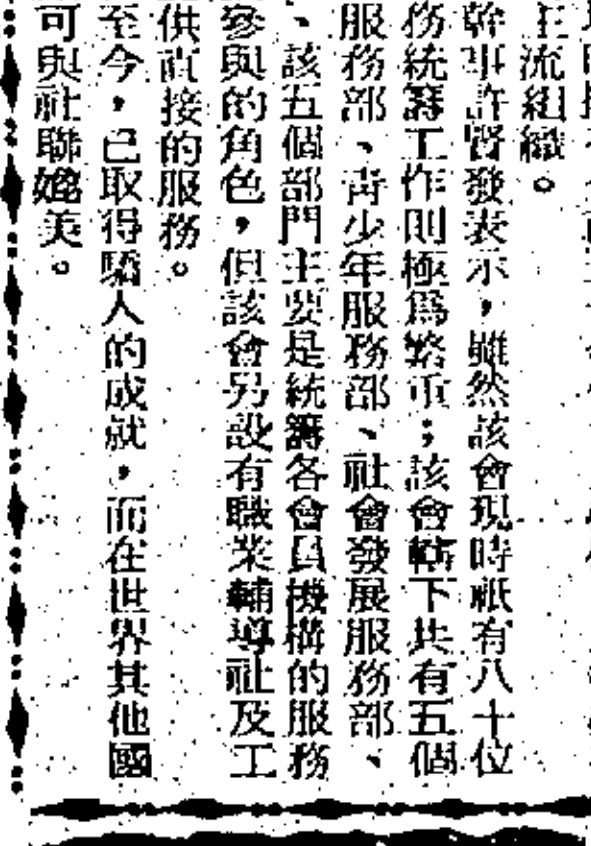 主流組織。
幹事許賢發表示，雖然該會現時祇有八十位
務統籌工作則極爲繁重；該會轄下共有五個
服務部、青少年服務部、社會發展服務部、
、該五個部門主要是統籌各會員機構的服務
參與的角色，但該會另設有職業輔導社及工
供直接的服務。
至今，已取得驕人的成就，而在世界其他國
可與社聯媲美。